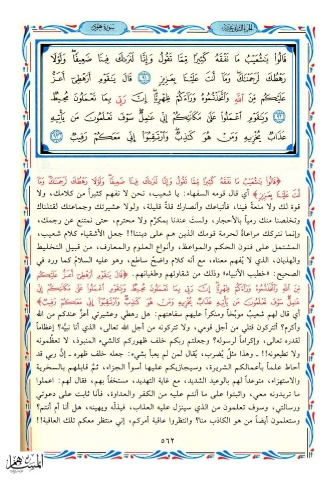 سورة هود
قَالُوا يَٰشُعَيْبُ مَا نَفْقَهُ كَثِيرًا مِّمَّا تَقُولُ وَإِنَّا لَنَرَىٰكَ فِينَا ضَعِيفًا وَلَوْلَا
رَهْطُكَ لَرَجَمْنَٰكَ وَمَا أَنتَ عَلَيْنَا بِعَزِيزٍ ٩١ قَالَ يَٰقَوْمِ أَرَهْطِي أَعَزُّ
عَلَيْكُم مِّنَ اللَّهِ وَاتَّخَذْتُمُوهُ وَرَاءَكُمْ ظِهْرِيًّا إِنَّ رَبِّي بِمَا تَعْمَلُونَ مُحِيطٌ
٩٢ وَيَٰقَوْمِ اعْمَلُوا عَلَىٰ مَكَانَتِكُمْ إِنِّي عَٰمِلٌ سَوْفَ تَعْلَمُونَ مَن يَأْتِيهِ
عَذَابٌ يُخْزِيهِ وَمَنْ هُوَ كَٰذِبٌ وَارْتَقِبُوا إِنِّي مَعَكُمْ رَقِيبٌ ٩٣
﴿قَالُوا يَٰشُعَيْبُ مَا نَفْقَهُ كَثِيرًا مِّمَّا تَقُولُ وَإِنَّا لَنَرَىٰكَ فِينَا ضَعِيفًا وَلَوْلَا رَهْطُكَ لَرَجَمْنَٰكَ وَمَا
أَنتَ عَلَيْنَا بِعَزِيزٍ﴾ أي قال قومه السفهاء: يا شعيب، نحن لا نفهم كثيراً من كلامك، ولا
قوة لك ولا منعة فينا، فأتباعك وأنصارك قلة قليلة، ولولا عشيرتك وجماعتك لقتلناك
وتخلصنا منك رمياً بالأحجار، ولست عندنا بمكرَّم ولا محترم، حتى نمتنع عن رجمك،
وإنما نتركك مراعاة لحرمة قومك الذين هم على ديننا!! جعل الأشقياء كلام شعيب،
المشتمل على فنون الحكم والمواعظ، وأنواع العلوم والمعارف، من قبيل التخليط
والهذيان، الذي لا يُفهم معناه، مع أنه كلام واضح ساطع، وهو عليه السلام كما ورد في
الصحيح: «خطيب الأنبياء» وذلك من شقاوتهم وطغيانهم. ﴿قَالَ يَٰقَوْمِ أَرَهْطِي أَعَزُّ عَلَيْكُم
مِّنَ اللَّهِ وَاتَّخَذْتُمُوهُ وَرَاءَكُمْ ظِهْرِيًّا إِنَّ رَبِّي بِمَا تَعْمَلُونَ مُحِيطٌ وَيَٰقَوْمِ اعْمَلُوا عَلَىٰ مَكَانَتِكُمْ إِنِّي
عَٰمِلٌ سَوْفَ تَعْلَمُونَ مَن يَأْتِيهِ عَذَابٌ يُخْزِيهِ وَمَنْ هُوَ كَٰذِبٌ وَارْتَقِبُوا إِنِّي مَعَكُمْ رَقِيبٌ﴾
أي قال لهم شعيب موبِّخاً ومنكراً عليهم سفاهتهم: هل رهطي وعشيرتي أعزُّ عندكم من الله
وأكرم؟ أتتركون قتلي من أجل قومي، ولا تتركونه من أجل الله تعالى، الذي أنا نبيُّه؟ إعظاماً
لقدره تعالى، وإكراماً لرسوله؟ وجعلتم ربكم خلف ظهوركم كالشيء المنبوذ، لا تعظِّمونه
ولا تطيعونه!! ـ وهذا مثلٌ يُضرب، يُقال لمن لم يعبأ بشيء: جعله خلف ظهره ـ إنَّ ربي قد
أحاط علماً بأعمالكم الشريرة، وسيجازيكم عليها أسوأ الجزاء، ثمَّ قابلهم بالسخرية
والاستهزاء، متوعداً لهم بالوعيد الشديد، مع غاية التهديد، مستخفّاً بهم، فقال لهم: اعملوا
ما تريدونه معي، واثبتوا على ما أنتم عليه من الكفر والعداوة، فأنا ثابت على دعوتي
ورسالتي، وسوف تعلمون من الذي سينزل عليه العذاب، فيذلُّه ويهينه، هل أنا أم أنتم؟
وستعلمون أيضاً من هو الكاذب منا؟ وانتظروا عاقبة أمركم، إني منتظر معكم تلك العاقبة!!
٥٦٢